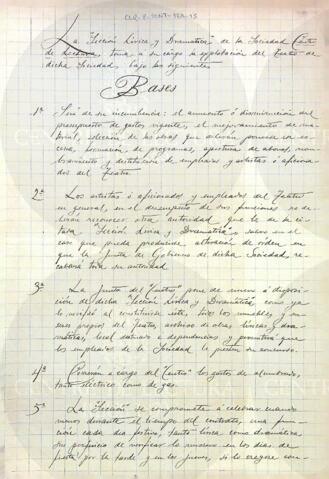 La "Sección Lírica y Dramática" de la Sociedad Centro
de Lectura, toma a su cargo la explotación del Teatro de
dicha Sociedad, bajo las siguientes
Bases
1ª Será de su incumbencia: el aumento ó disminución del
presupuesto de gastos vigentes, el mejoramiento de ma-
terial, selección de las obras que deberán ponerse en es-
cena, formación de programas, apertura de abonos, nom-
bramiento y destitución de empleados y artistas ó aficiona-
dos del Teatro.
2ª Los artistas ó aficionados y empleados del Teatro
en general, en el desempeño de sus funciones no de-
berán reconocer otra autoridad que la de la ci-
tada "Sección Lírica y Dramática" salvo en el
caso que pueda producirse alteración de orden en
que la Junta de Gobierno de dicha Sociedad, re-
cabará toda su autoridad.
3ª La Junta del "Centro" pone de nuevo á disposi-
ción de dicha "Sección Lírica y Dramática" como ya
lo verificó al constituirse esta, todos los muebles y en-
seres propios del Teatro, archivo de obras líricas y dra-
máticas, local y dependencias y permitirá que
los empleados de la Sociedad le presten su concurso.
4ª Correrán a cargo del "Centro" los gastos de alumbrado,
tanto eléctrico como de gas.
5ª La "Sección" se compromete á celebrar cuando
menos durante el tiempo del contrato, una fun-
ción cada día festivo, tanto lírica como dramática
sin perjuicio de verificar lo mismo en los días de
fiesta por la tarde y en los jueves, si lo creyere con-